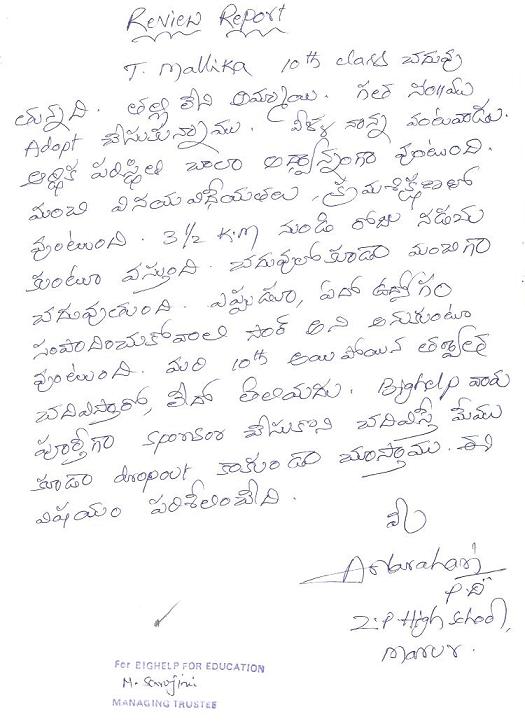 Review Report
T. Mallika 10th class చదువు
తున్నది. తల్లి లేని అమ్మాయి. గత సం॥ము
Adopt చేసుకున్నాము. వీళ్ళ నాన్న వంటవాడు.
ఆర్థిక పరిస్థితి చాలా అధ్వాన్నంగా వుంటుంది.
మంచి వినయ విధేయతలు, క్రమశిక్షణతో
వుంటుంది. 3 1/2 K.M నుండి రోజు నడుచు
కుంటూ వస్తుంది. చదువులో కూడా మంచిగా
చదువుతుంది. ఎప్పుడూ, ఏదో ఉద్యోగం
సంపాదించుకోవాలి సార్ అని అనుకుంటూ
వుంటుంది. మరి 10th అయిపోయిన తర్వాత
చదివిస్తారో, లేదో తెలియదు. Bighelp వారు
పూర్తిగా sponsor చేసుకొని చదివిస్తే మేము
కూడా dropout కాకుండా చూస్తాము. ఈ
విషయం పరిశీలించేది.
P.D
Z.P High School,
Marur.
For BIGHELP FOR EDUCATION
M. Sarojini
MANAGING TRUSTEE